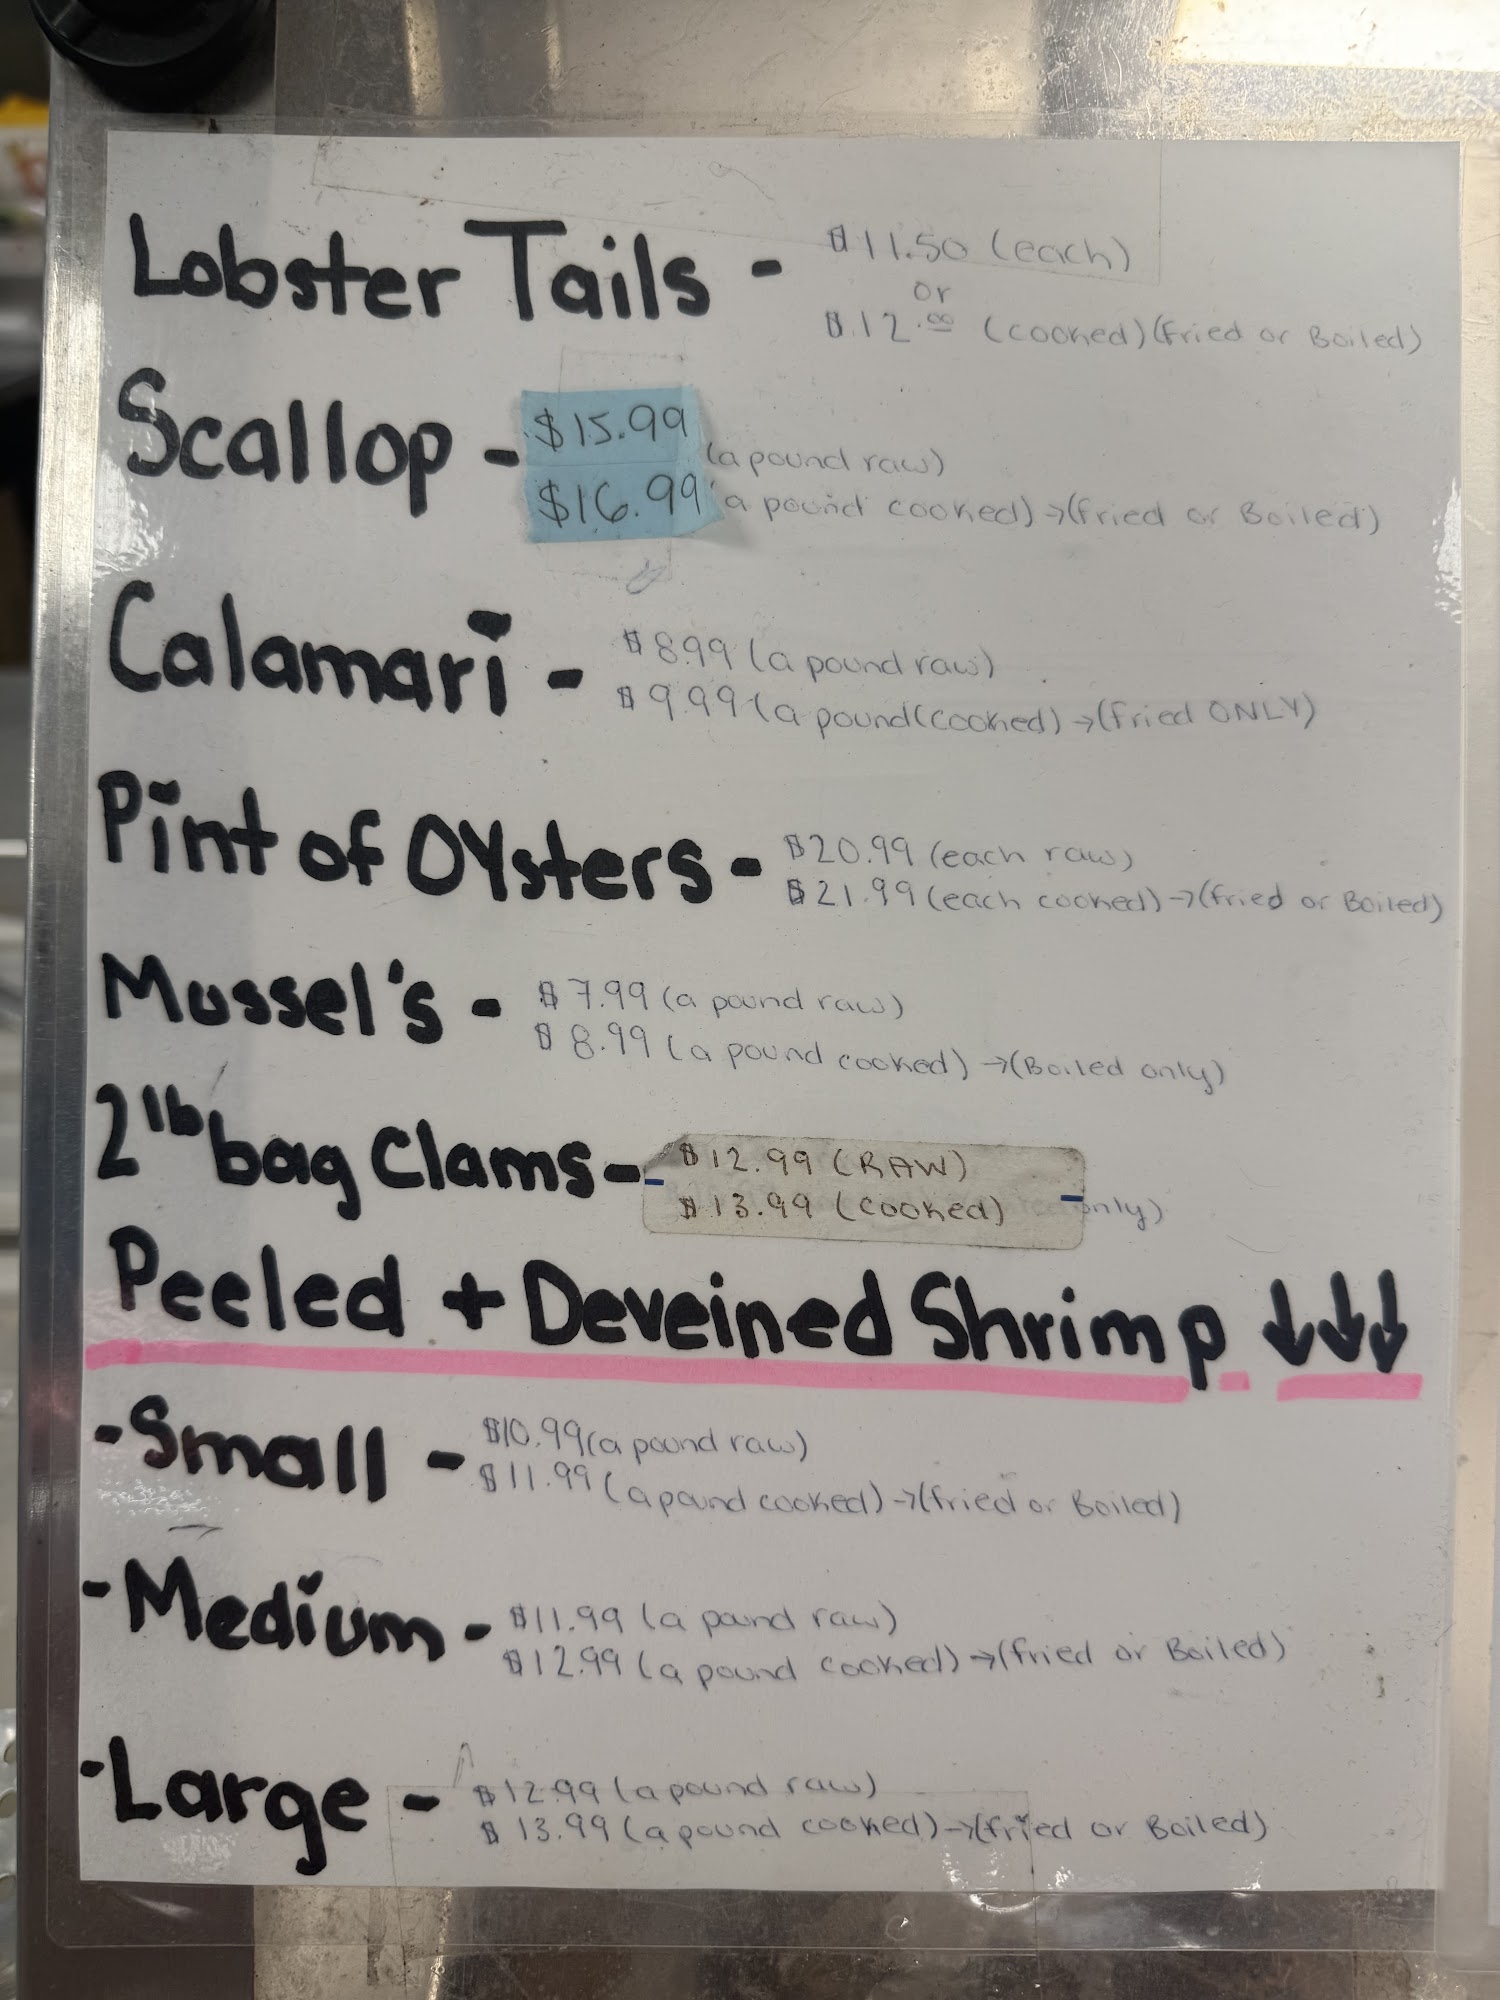 Lobster Tails - $11.50 (each)
or
$12.00 (cooked)(Fried or Boiled)
Scallop - $15.99 (a pound raw)
$16.99 (a pound cooked)→(fried or Boiled)
Calamari - $8.99 (a pound raw)
$9.99 (a pound(cooked)→(fried ONLY)
Pint of OYsters - $20.99 (each raw)
$21.99 (each cooked)→(fried or Boiled)
Mussel's - $7.99 (a pound raw)
$8.99 (a pound cooked)→(Boiled only)
2lb bag Clams - $12.99 (RAW)
$13.99 (cooked) only)
Peeled + Deveined Shrimp ↓↓↓
- Small - $10.99 (a pound raw)
$11.99 (a pound cooked)→(fried or Boiled)
- Medium - $11.99 (a pound raw)
$12.99 (a pound cooked)→(fried or Boiled)
- Large - $12.99 (a pound raw)
$13.99 (a pound cooked)→(fried or Boiled)